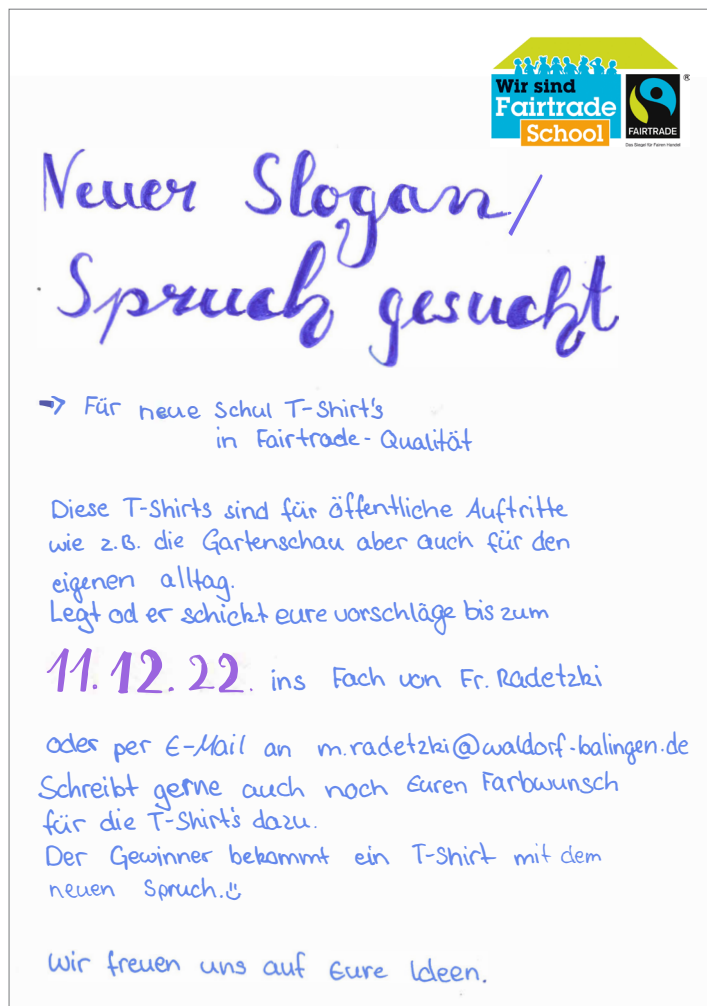 Wir sind
Fairtrade
School
®
FAIRTRADE
Das Siegel für Fairen Handel
Neuer Slogan/
Spruch gesucht
→ Für neue Schul T-Shirt's
in Fairtrade-Qualität
Diese T-Shirts sind für öffentliche Auftritte
wie z.B. die Gartenschau aber auch für den
eigenen alltag.
Legt od er schickt eure vorschläge bis zum
11.12.22. ins Fach von Fr. Radetzki
oder per E-Mail an m.radetzki@waldorf-balingen.de
Schreibt gerne auch noch Euren Farbwunsch
für die T-Shirt's dazu.
Der Gewinner bekommt ein T-Shirt mit dem
neuen Spruch.
Wir freuen uns auf Eure Ideen.